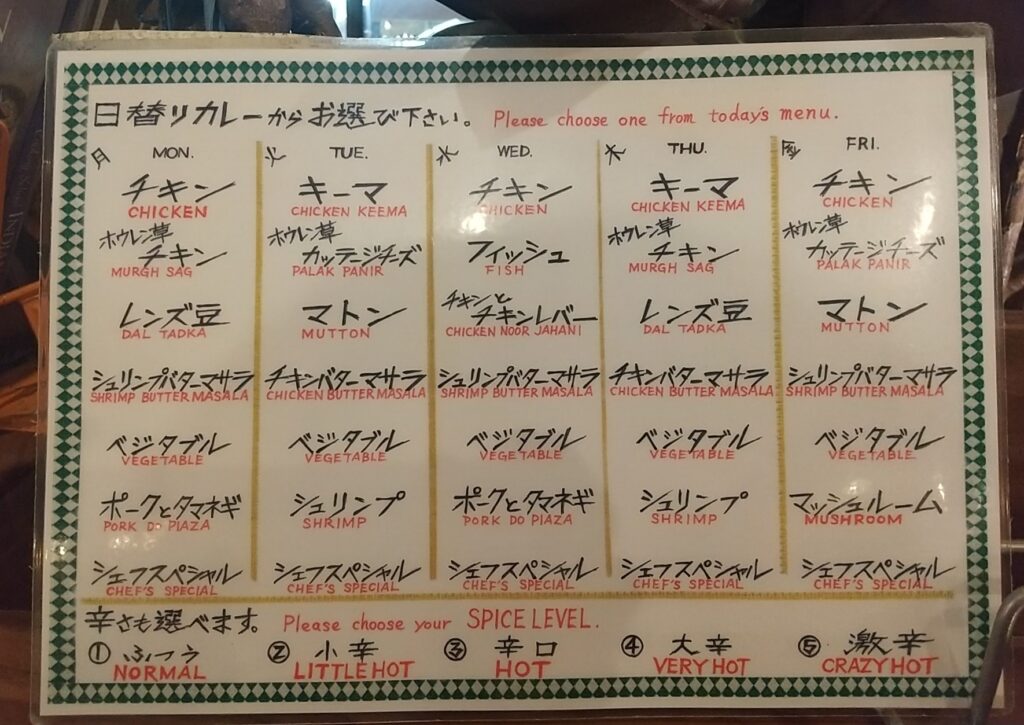 日替りカレーからお選び下さい。 Please choose one from today's menu.
月 MON.
チキン
CHICKEN
ホウレン草
チキン
MURGH SAG
レンズ豆
DAL TADKA
シュリンプバターマサラ
SHRIMP BUTTER MASALA
ベジタブル
VEGETABLE
ポークとタマネギ
PORK DO PIAZA
シェフスペシャル
CHEF'S SPECIAL
火 TUE.
キーマ
CHICKEN KEEMA
ホウレン草
カッテージチーズ
PALAK PANIR
マトン
MUTTON
チキンバターマサラ
CHICKEN BUTTER MASALA
ベジタブル
VEGETABLE
シュリンプ
SHRIMP
シェフスペシャル
CHEF'S SPECIAL
水 WED.
チキン
CHICKEN
フィッシュ
FISH
チキンと
チキンレバー
CHICKEN NOOR JAHANI
シュリンプバターマサラ
SHRIMP BUTTER MASALA
ベジタブル
VEGETABLE
ポークとタマネギ
PORK DO PIAZA
シェフスペシャル
CHEF'S SPECIAL
木 THU.
キーマ
CHICKEN KEEMA
ホウレン草
チキン
MURGH SAG
レンズ豆
DAL TADKA
チキンバターマサラ
CHICKEN BUTTER MASALA
ベジタブル
VEGETABLE
シュリンプ
SHRIMP
シェフスペシャル
CHEF'S SPECIAL
金 FRI.
チキン
CHICKEN
ホウレン草
カッテージチーズ
PALAK PANIR
マトン
MUTTON
シュリンプバターマサラ
SHRIMP BUTTER MASALA
ベジタブル
VEGETABLE
マッシュルーム
MUSHROOM
シェフスペシャル
CHEF'S SPECIAL
辛さも選べます。 Please choose your SPICE LEVEL.
① ふつう
NORMAL
② 小辛
LITTLE HOT
③ 辛口
HOT
④ 大辛
VERY HOT
⑤ 激辛
CRAZY HOT